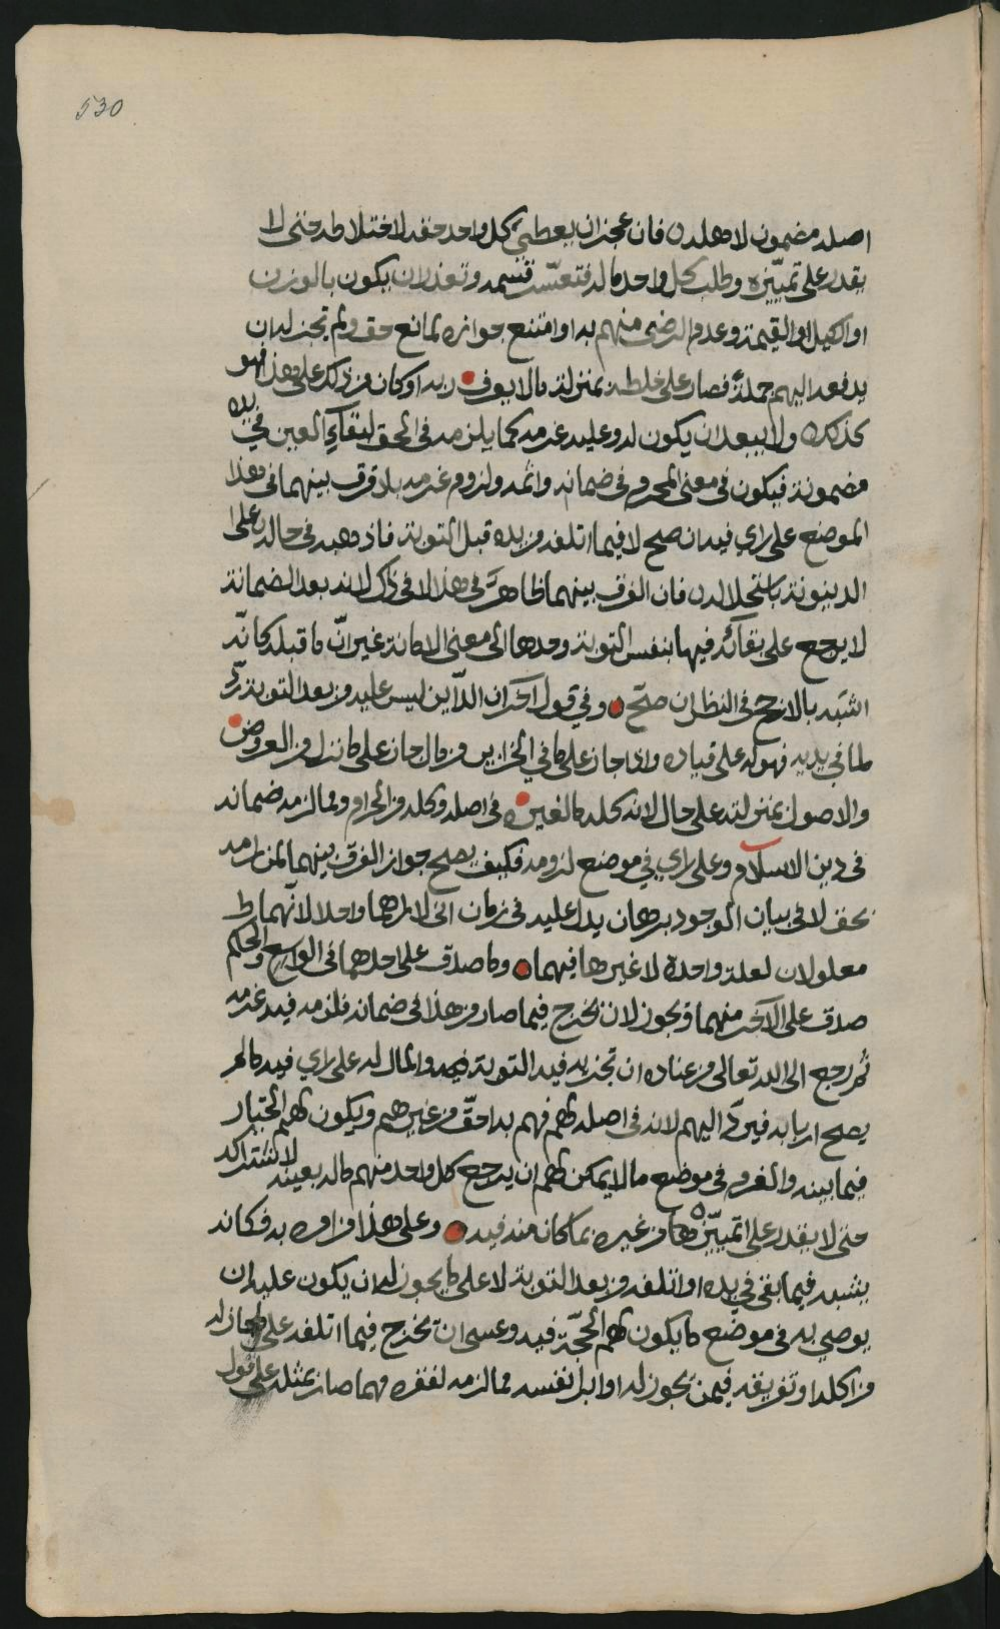 530
اصله مضمون لاهله فان عجز ان يعطي كل واحد حقه لاختلاطه حتى لا
يقدر على تمييزه وطلب كل واحد ماله فتعسّر قسمه وتعذر ان يكون بالوزن
او الكيل او القيمة وعدم الرضى منهم به او امتنع جوازه لمانع حق ولم تجز له ان
يدفعه اليهم جملةً فصار على خلطه بمنزلة مالا يعرف ربه او كان من ذلك على هذا فهو
كذلك ولا يبعد ان يكون له وعليه غرمه كما يلزمه في الحق لبقآءِ العين في يده
مضمونة فيكون في معنى المحروم في ضمانه واثمه ولزوم غرمه بلا فرق بينهما في هذا
الموضع على راي فيه ان صح لا فيما اتلفه من يده قبل التوبة فاذهبه في حاله على
الدينونة باستحلاله فان الفرق بينهما ظاهرٌ في هذا لا في ذلك لانه بعد الضمانة
لا يرجع على بقآئه فيها بنفس التوبة وحدها الى معنى الامانة غير انّ ما قبله كانّه
اشبه بالارجح في النظر ان صحّ وفي قول آخر ان الدّاين ليس عليه من بعد التوبة ردّ
لما في يديه فهو له على قياده واذا جاز على ما في الخزاين من مال جاز على ما نزل من العروض
والاصول بمنزلته على حال لانه كله مال لغيره في اصله وكله من الحرام ومما لزمه ضمانه
في دين الاسلام وعلى راي في موضع لزومه فكيف يصلح جواز الفرق بينهما لمن رامه
بحق لا في بيان الوجود برهان يدل عليه في زمان اني لا اراهما واحدا لانّهما
معلولان لعلة واحدة لا غيرها فيهما وما صدق على احدهما في الواسع والحكم
صدق على الآخر منهما ويجوز لان يخرج فيما صار من هذا في ضمانه فلزمه فيه غرمه
ثم رجع الى الله تعالى من عناده ان تجزيه فيه التوبة فيه والمال له على راي فيه مالم
يصح اربابه فيردّ اليهم لانه في اصله لهم فهم به احقّ من غيرهم ويكون لهم الخيار
فيما بينه والغرم في موضع مالا يمكن لهم ان يرجع كل واحد منهم ماله بعينه لاشتراكه
حتى لا يقدر على تمييزه هنا من غيره بما كان منه فيه وعلى هذا من امره به فكانه
يشبه فيما بقي في يده او اتلفه من بعد التوبة لا على ما يجوز له ان يكون عليه ان
يوصي به في موضع ما يكون لهم الحجّة فيه وعسى ان يخرج فيما اتلفه على ما جاز له
من اكله او تفريقه فيمن يجوز له او ابرا نفسه مما لزمه لفقره مهما صار بمثله على قول